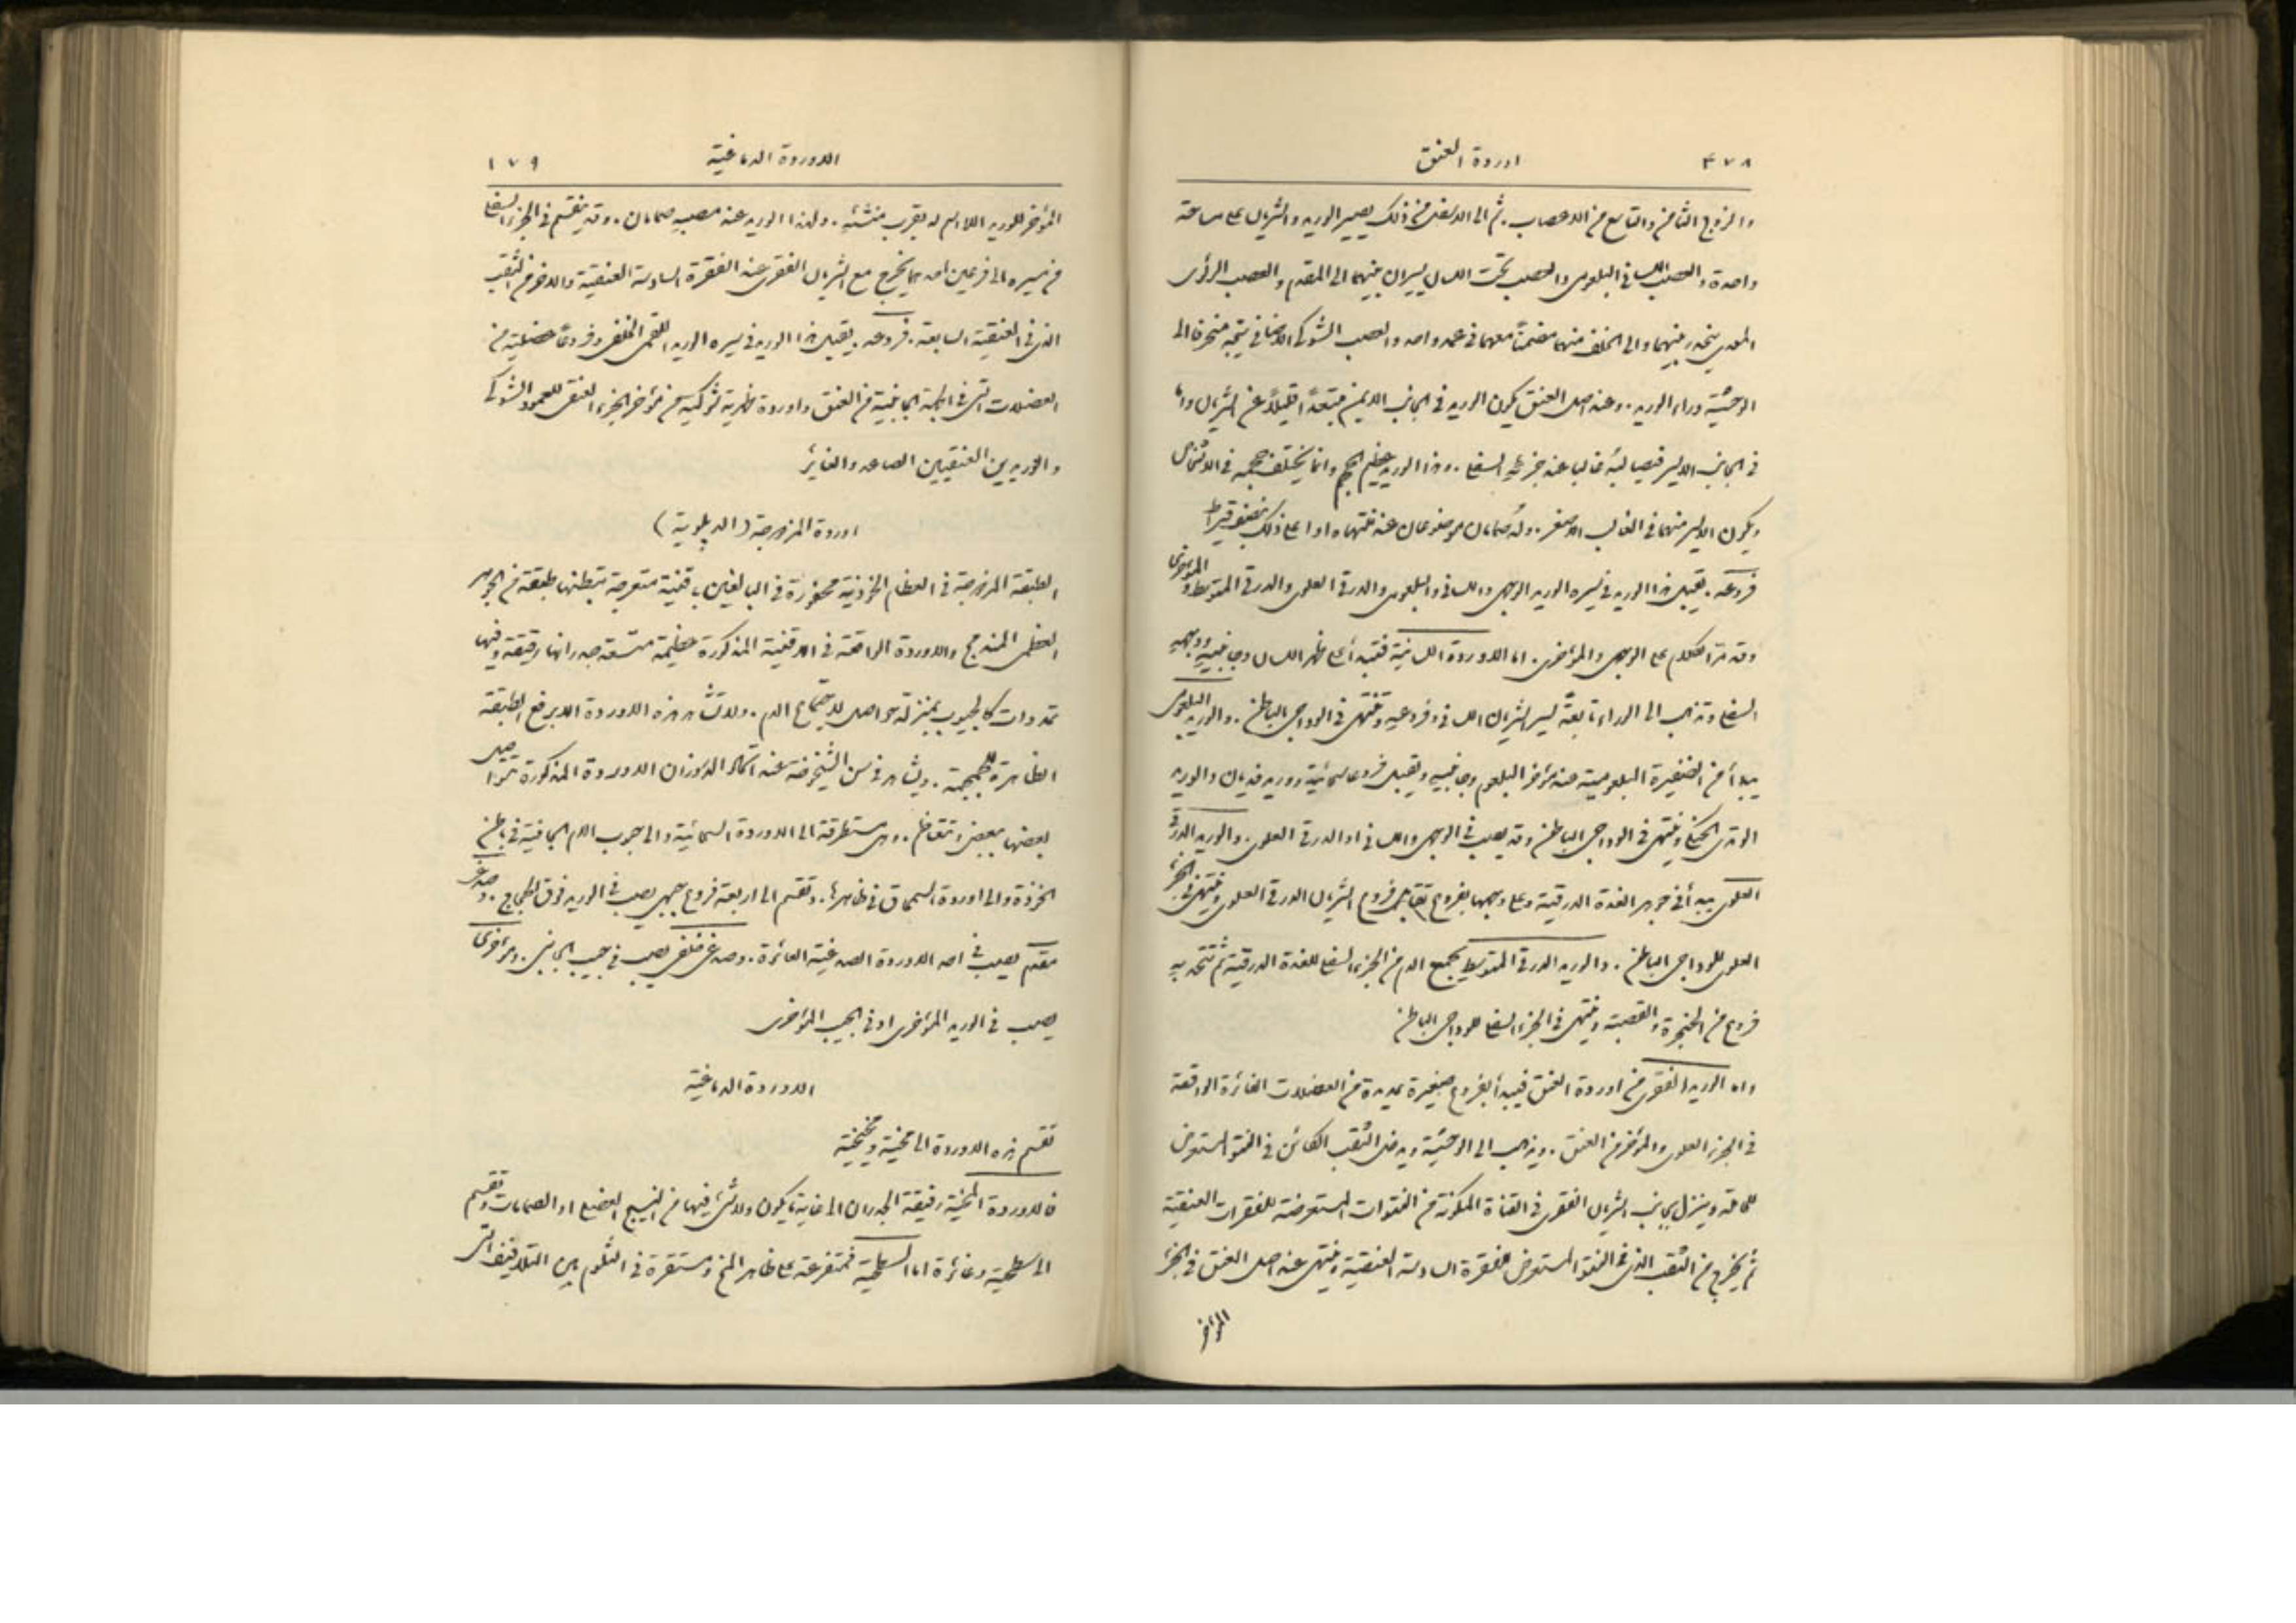 ٤٧٨ اوردة العنق
والزوج الثامن والتاسع من الاعصاب. ثم الى الاسفل من ذلك يصير الوريد والشريان على مساحة
واحدة والعصب اللساني البلعومي والعصب تحت اللسان يسيران بينهما الى المقدم والعصب الرئوي
المعدي ينحدر بينهما والى الخلف منهما منضمًا معهما في غمد واحد والعصب الشوكي الاضافي يتجه منحرفًا الى
الوحشية وراء الوريد. وعند اصل العنق يكون الوريد في الجانب الايمن مبتعدًا قليلًا عن الشريان واما
في الجانب الايسر فيصالبه غالبا عند جزئه السفلي. وهذا الوريد عظيم الحجم وانما يختلف حجمه في الاشخاص
ويكون الايسر منهما في الغالب الاصغر. وله صمامان موضوعان عند منتهاه او اعلى ذلك بنصف قيراط
فروعه. يقبل هذا الوريد في مسيره الوريد الوجهي واللساني والبلعومي والدرقي العلوي والدرقي المتوسط والمؤخري
وقد مر الكلام على الوجهي والمؤخري. اما الاوردة اللسانية فتبدأ على ظهر اللسان وجانبيه ووجهه
السفلي وتذهب الى الوراء تابعة لسير الشريان اللساني وفروعه وتنتهي في الوداجي الباطن. والوريد البلعومي
يبدأ من الضفيرة البلعومية عند مؤخر البلعوم وجانبيه ويقبل فروعا سحائية ووريد فديان والوريد
الوتدي الحنكي وينتهي في الوداجي الباطن وقد يصب في الوجهي واللساني او الدرقي العلوي. والوريد الدرقي
العلوي يبدأ في جوهر الغدة الدرقية وعلى وجهها بفروع تقابل فروع الشريان الدرقي العلوي وينتهي في الجزء
العلوي للوداجي الباطن. والوريد الدرقي المتوسط يجمع الدم من الجزء السفلي للغدة الدرقية ثم تتحد به
فروع من الحنجرة والقصبة وينتهي في الجزء السفلي للوداجي الباطن
واما الوريد الفقري من اوردة العنق فيبدأ بفروع صغيرة عديدة من العضلات الغائرة الواقعة
في الجزء العلوي والمؤخر من العنق. ويذهب الى الوحشية ويدخل الثقب الكائن في النتو المستعرض
للحاملة وينزل بجانب الشريان الفقري في القناة المكونة من النتوات المستعرضة للفقرات العنقية
ثم يخرج من الثقب الذي في النتو المستعرض للفقرة السادسة العنقية وينتهي عند اصل العنق في الجزء
المؤخر
الاوردة الدماغية ١٧٩
المؤخر للوريد اللااسم له بقرب منشئه. ولهذا الوريد عند مصبه صمامان. وقد ينقسم في الجزء السفلي
من مسيره الى فرعين احدهما يخرج مع الشريان الفقري عند الفقرة السادسة العنقية والاخر من الثقب
الذي في العنقية السابعة. فروعه. يقبل هذا الوريد في مسيره الوريد اللقمي الخلفي وفروعًا عضلية من
العضلات التي في الجهة الجانبية من العنق واوردة ظهرية شوكية من مؤخر الجزء العنقي للعمود الشوكي
والوريدين العنقيين الصاعد والغائر
اوردة المزدوجة (الدبلوية)
الطبقة المزدوجة في العظام الخوذية محفورة في البالغين باقنية متعرجة تبطنها طبقة من الجوهر
العظمي المندمج والاوردة الواقعة في الاقنية المذكورة عظيمة متسعة جدرانها رقيقة وفيها
تمددات كالجيوب بمنزلة حواصل لاجتماع الدم. ولا تشاهد هذه الاوردة الا برفع الطبقة
الظاهرة للجمجمة. ويشاهد في سن الشيخوخة عند اكمال الدروزان الاوردة المذكورة تتواصل
بعضها ببعض وتتعاظم. وهي مستطرقة الى الاوردة السحائية والى جيوب الام الجافية في باطن
الخوذة والى اوردة السمحاق في ظاهرها. وتقسم الى اربعة فروع جبهي يصب في الوريد فوق الحجاج. وصدغي
مقدم يصب في احد الاوردة الصدغية الغائرة. وصدغي خلفي يصب في الجيب الجانبي. ومؤخري
يصب في الوريد المؤخري او في الجيب المؤخري
الاوردة الدماغية
تقسم هذه الاوردة الى مخية ومخيخية
فالاوردة المخية رقيقة الجدران الى غاية ما يكون ولا شيء فيها من النسيج العضلي او الصمامات وتقسم
الى سطحية وغائرة اما السطحية فمتفرعة على ظاهر المخ ومستقرة في الثلوم بين التلافيف التي